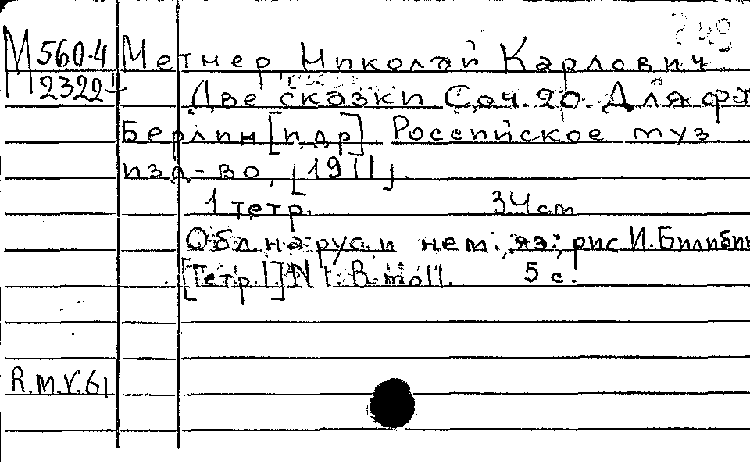 249
М 560-4 Метнер, Николай Карлович
2322 Две сказки Соч. 20. Для фп
Берлин [и др] Российское муз
изд-во, [1911].
1 тетр. 34 cm
Обл. на рус. и нем. яз; рис И. Билибин
[Тетр. 1] N 1. B moll. 5 с.
R.M.V. 61